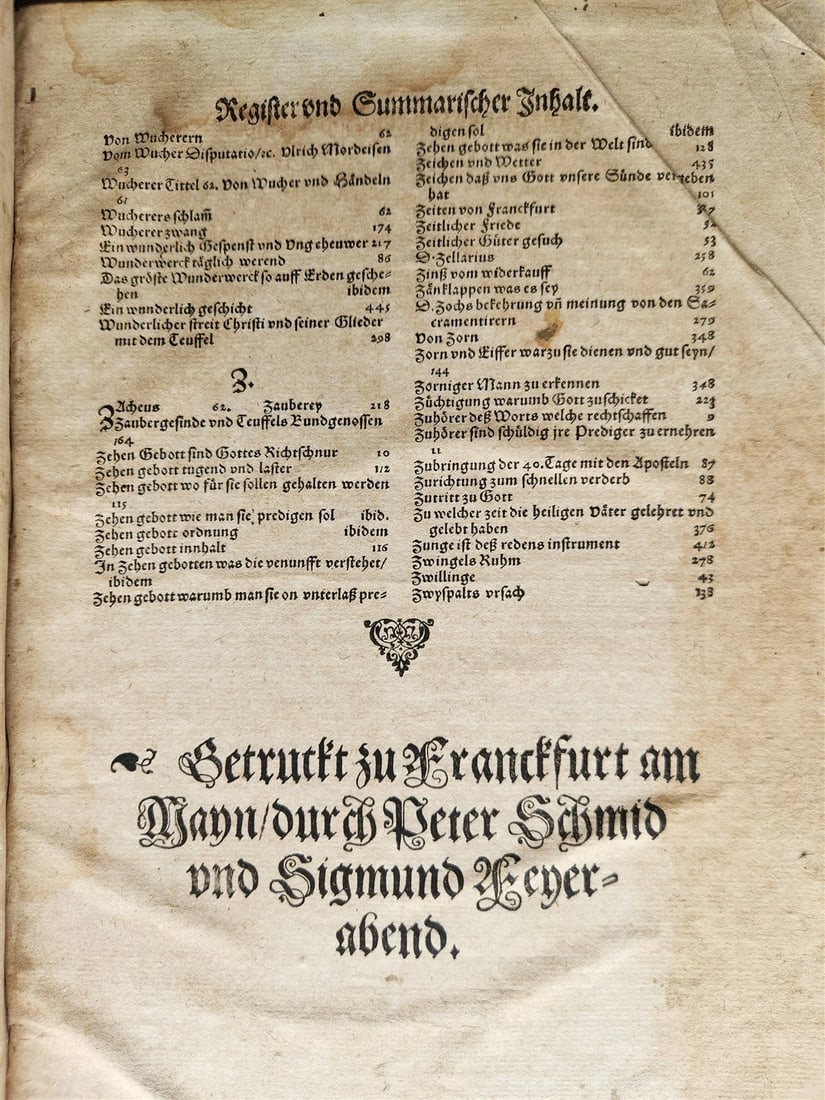 Register vnd Summarischer Inhalt.
Von Wucherern 62
Vom Wucher Disputatio/ꝛc. Vlrich Mordeisen
63
Wucherer Tittel 62. Von Wucher vnd Händeln
61
Wucherers schlam̃ 62
Wucherer zwang 174
Ein wunderlich Gespenst vnd Vngeheuwer 217
Wunderwerck täglich werend 86
Das gröste Wunderwerck so auff Erden gesche-
hen ibidem
Ein wunderlich geschicht 445
Wunderlicher streit Christi vnd seiner Glieder
mit dem Teuffel 298
Z.
ZAcheus 62. Zauberey 218
Zaubergesinde vnd Teuffels Bundgenossen
164
Zehen Gebott sind Gottes Richtschnur 10
Zehen gebott tugend vnd laster 112
Zehen gebott wo für sie sollen gehalten werden
115
Zehen gebott wie man sie predigen sol ibid.
Zehen gebott ordnung ibidem
Zehen gebott innhalt 116
In Zehen gebotten was die venunfft verstehet/
ibidem
Zehen gebott warumb man sie on vnterlaß pre-
digen sol ibidem
Zehen gebott was sie in der Welt sind 128
Zeichen vnd Wetter 435
Zeichen daß vns Gott vnsere Sünde vergeben
hat 101
Zeiten von Franckfurt
Zeitlicher Friede 52
Zeitlicher Güter gesuch 53
D. Zellarius 258
Zinß vom widerkauff 62
Zänklappen was es sey 359
D. Zochs bekehrung vñ meinung von den Sa-
cramentirern 279
Von Zorn 348
Zorn vnd Eiffer warzu sie dienen vnd gut seyn/
144
Zorniger Mann zu erkennen 348
Züchtigung warumb Gott zuschicket 223
Zuhörer deß Worts welche rechtschaffen 9
Zuhörer sind schüldig jre Prediger zu ernehren
11
Zubringung der 40. Tage mit den Aposteln 87
Zurichtung zum schnellen verderb 88
Zutritt zu Gott 74
Zu welcher zeit die heiligen Väter gelehret vnd
gelebt haben 376
Zunge ist deß redens instrument 412
Zwingels Ruhm 278
Zwillinge 43
Zwyspalts vrsach 138
Getruckt zu Franckfurt am
Mayn/durch Peter Schmid
vnd Sigmund Feyer-
abend.